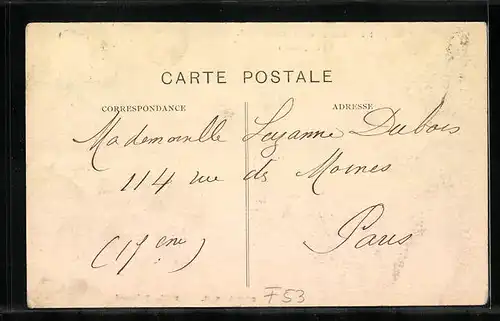 CARTE POSTALE
CORRESPONDANCE ADRESSE
Mademoiselle Suzanne Dubois
114 rue des Moines
Paris
(17 eme)
F53